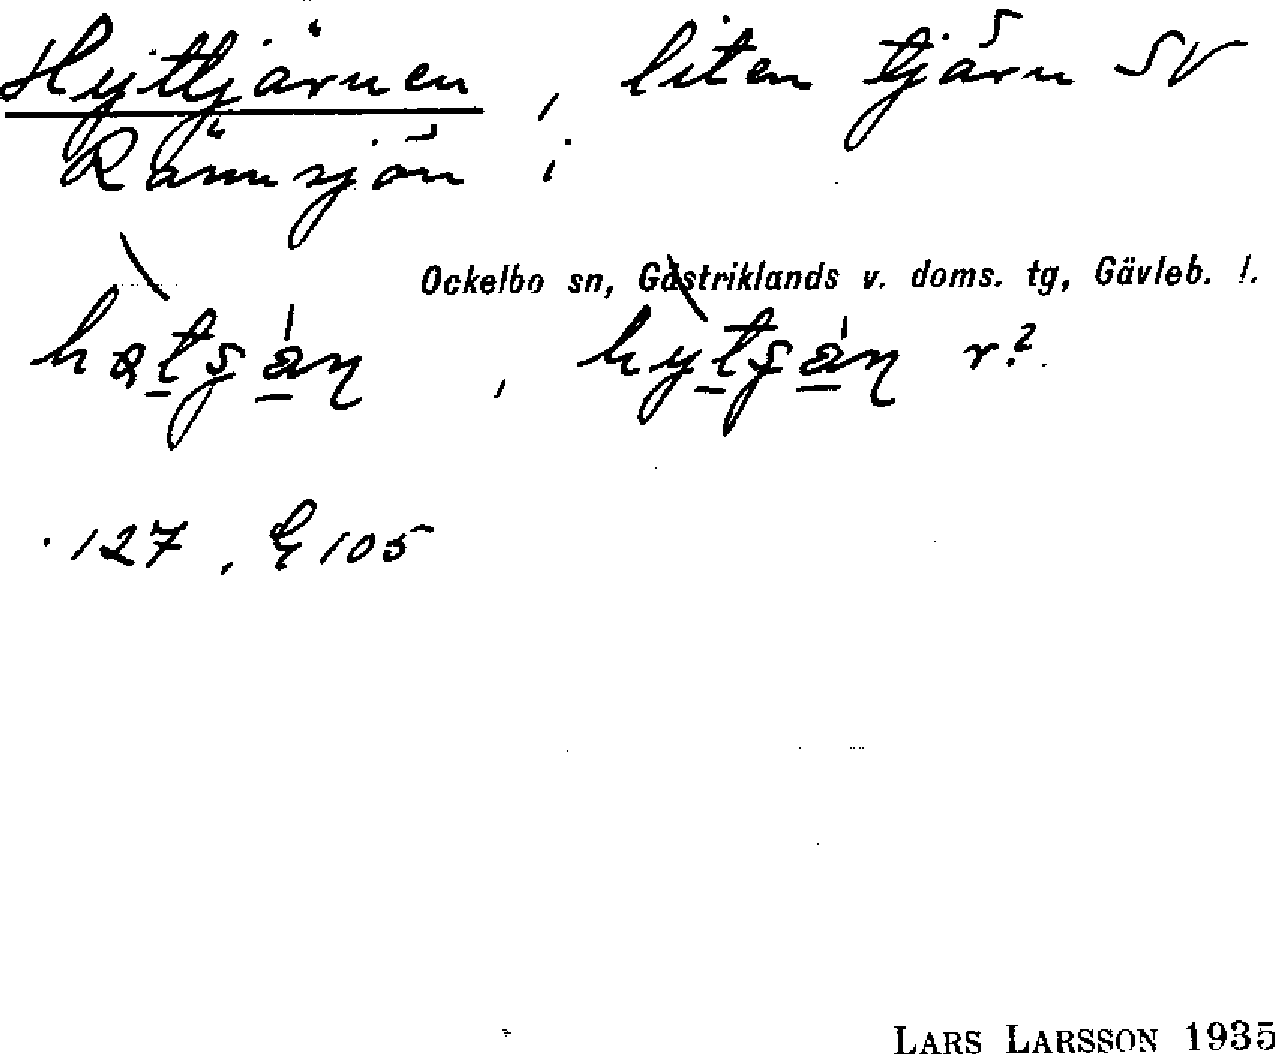 Hyttjärnen, liten tjärn SV
Rännsjön i
Ockelbo sn, Gästriklands v. doms. tg, Gävleb. l.
r?
127, E 105
LARS LARSSON 1935